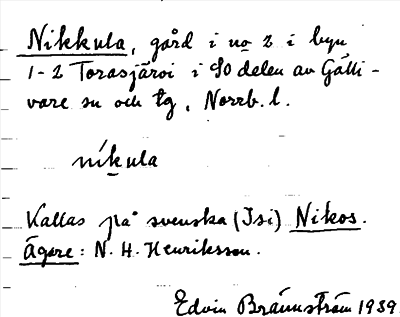 Nikkula, gård i no 2 i byn
1-2 Torasjärvi i SO delen av Gälli-
vare sn och tg, Norrb. l.
nikula
Kallas på svenska (Isi) Nikos.
Ägare: N. H. Henriksson.
Edvin Brännström 1939